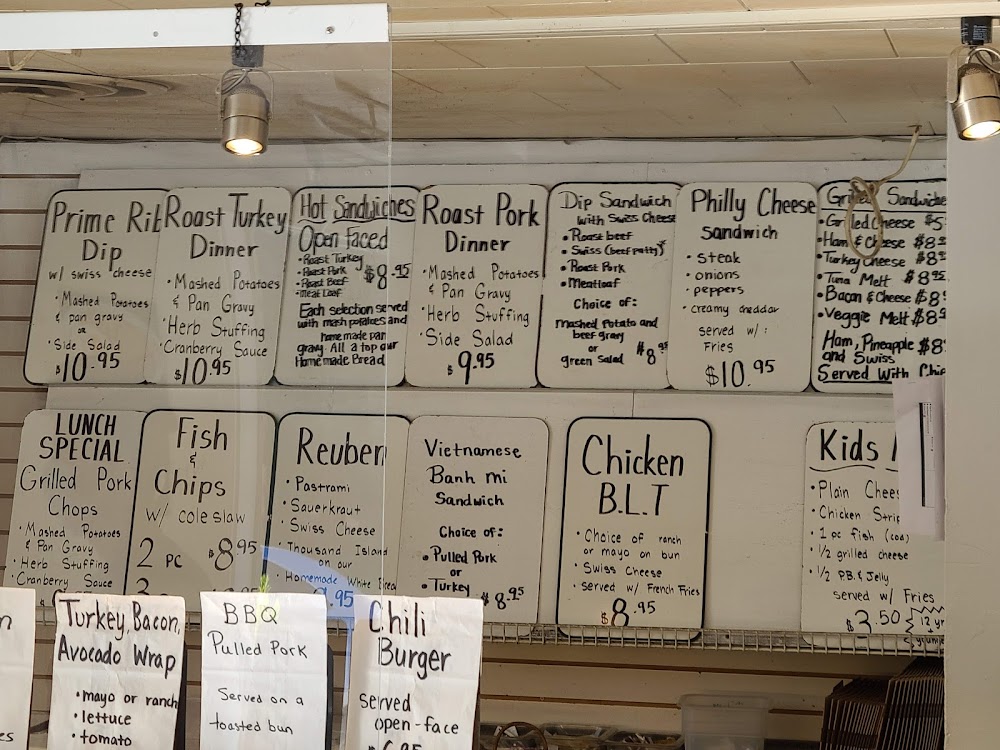 Prime Rib
Dip
w/ swiss cheese
• Mashed Potatoes
& pan gravy
or
• Side Salad
$10.95
Roast Turkey
Dinner
• Mashed Potatoes
& Pan Gravy
• Herb Stuffing
• Cranberry Sauce
$10.95
Hot Sandwiches
Open Faced
• Roast Turkey
• Roast Pork
• Roast Beef
• Meat Loaf
$8.95
Each selection served
with mash potatoes and
home made pan
gravy. All a top our
Homemade Bread
Roast Pork
Dinner
• Mashed Potatoes
& Pan Gravy
• Herb Stuffing
• Side Salad
$9.95
Dip Sandwich
with Swiss Cheese
• Roast beef
• Swiss (beef patty)
• Roast Pork
• Meatloaf
Choice of:
Mashed Potato and
beef gravy
or
green Salad $8.95
Philly Cheese
Sandwich
• steak
• onions
• peppers
• creamy cheddar
served w/ :
Fries
$10.95
Sandwiche
• Grilled Cheese $5
• Ham & Cheese $8.
• Turkey Cheese $8.95
• Tuna Melt $8.95
• Bacon & Cheese $8
• Veggie Melt $8
Ham, Pineapple $8
and Swiss
Served With Chip
LUNCH
SPECIAL
Grilled Pork
Chops
• Mashed Potatoes
& Pan Gravy
• Herb Stuffing
• Cranberry Sauce
Fish
&
Chips
w/ coleslaw
2 PC $8.95
Reuben
• Pastrami
• Sauerkraut
• Swiss Cheese
• Thousand Island
on our
• Homemade White Bread
.95
Vietnamese
Banh mi
Sandwich
Choice of:
• Pulled Pork
or
• Turkey $8.95
Chicken
B.L.T
• Choice of ranch
or mayo on bun
• Swiss Cheese
• served w/ French Fries
$8.95
Kids
• Plain Chees
• Chicken Strip
• 1 pc fish (cod)
• 1/2 grilled cheese
• 1/2 P.B. & Jelly
served w/ Fries
$3.50 12 yr
Turkey, Bacon,
Avocado Wrap
• mayo or ranch
• lettuce
• tomato
BBQ
Pulled Pork
Served on a
toasted bun
Chili
Burger
served
open-face